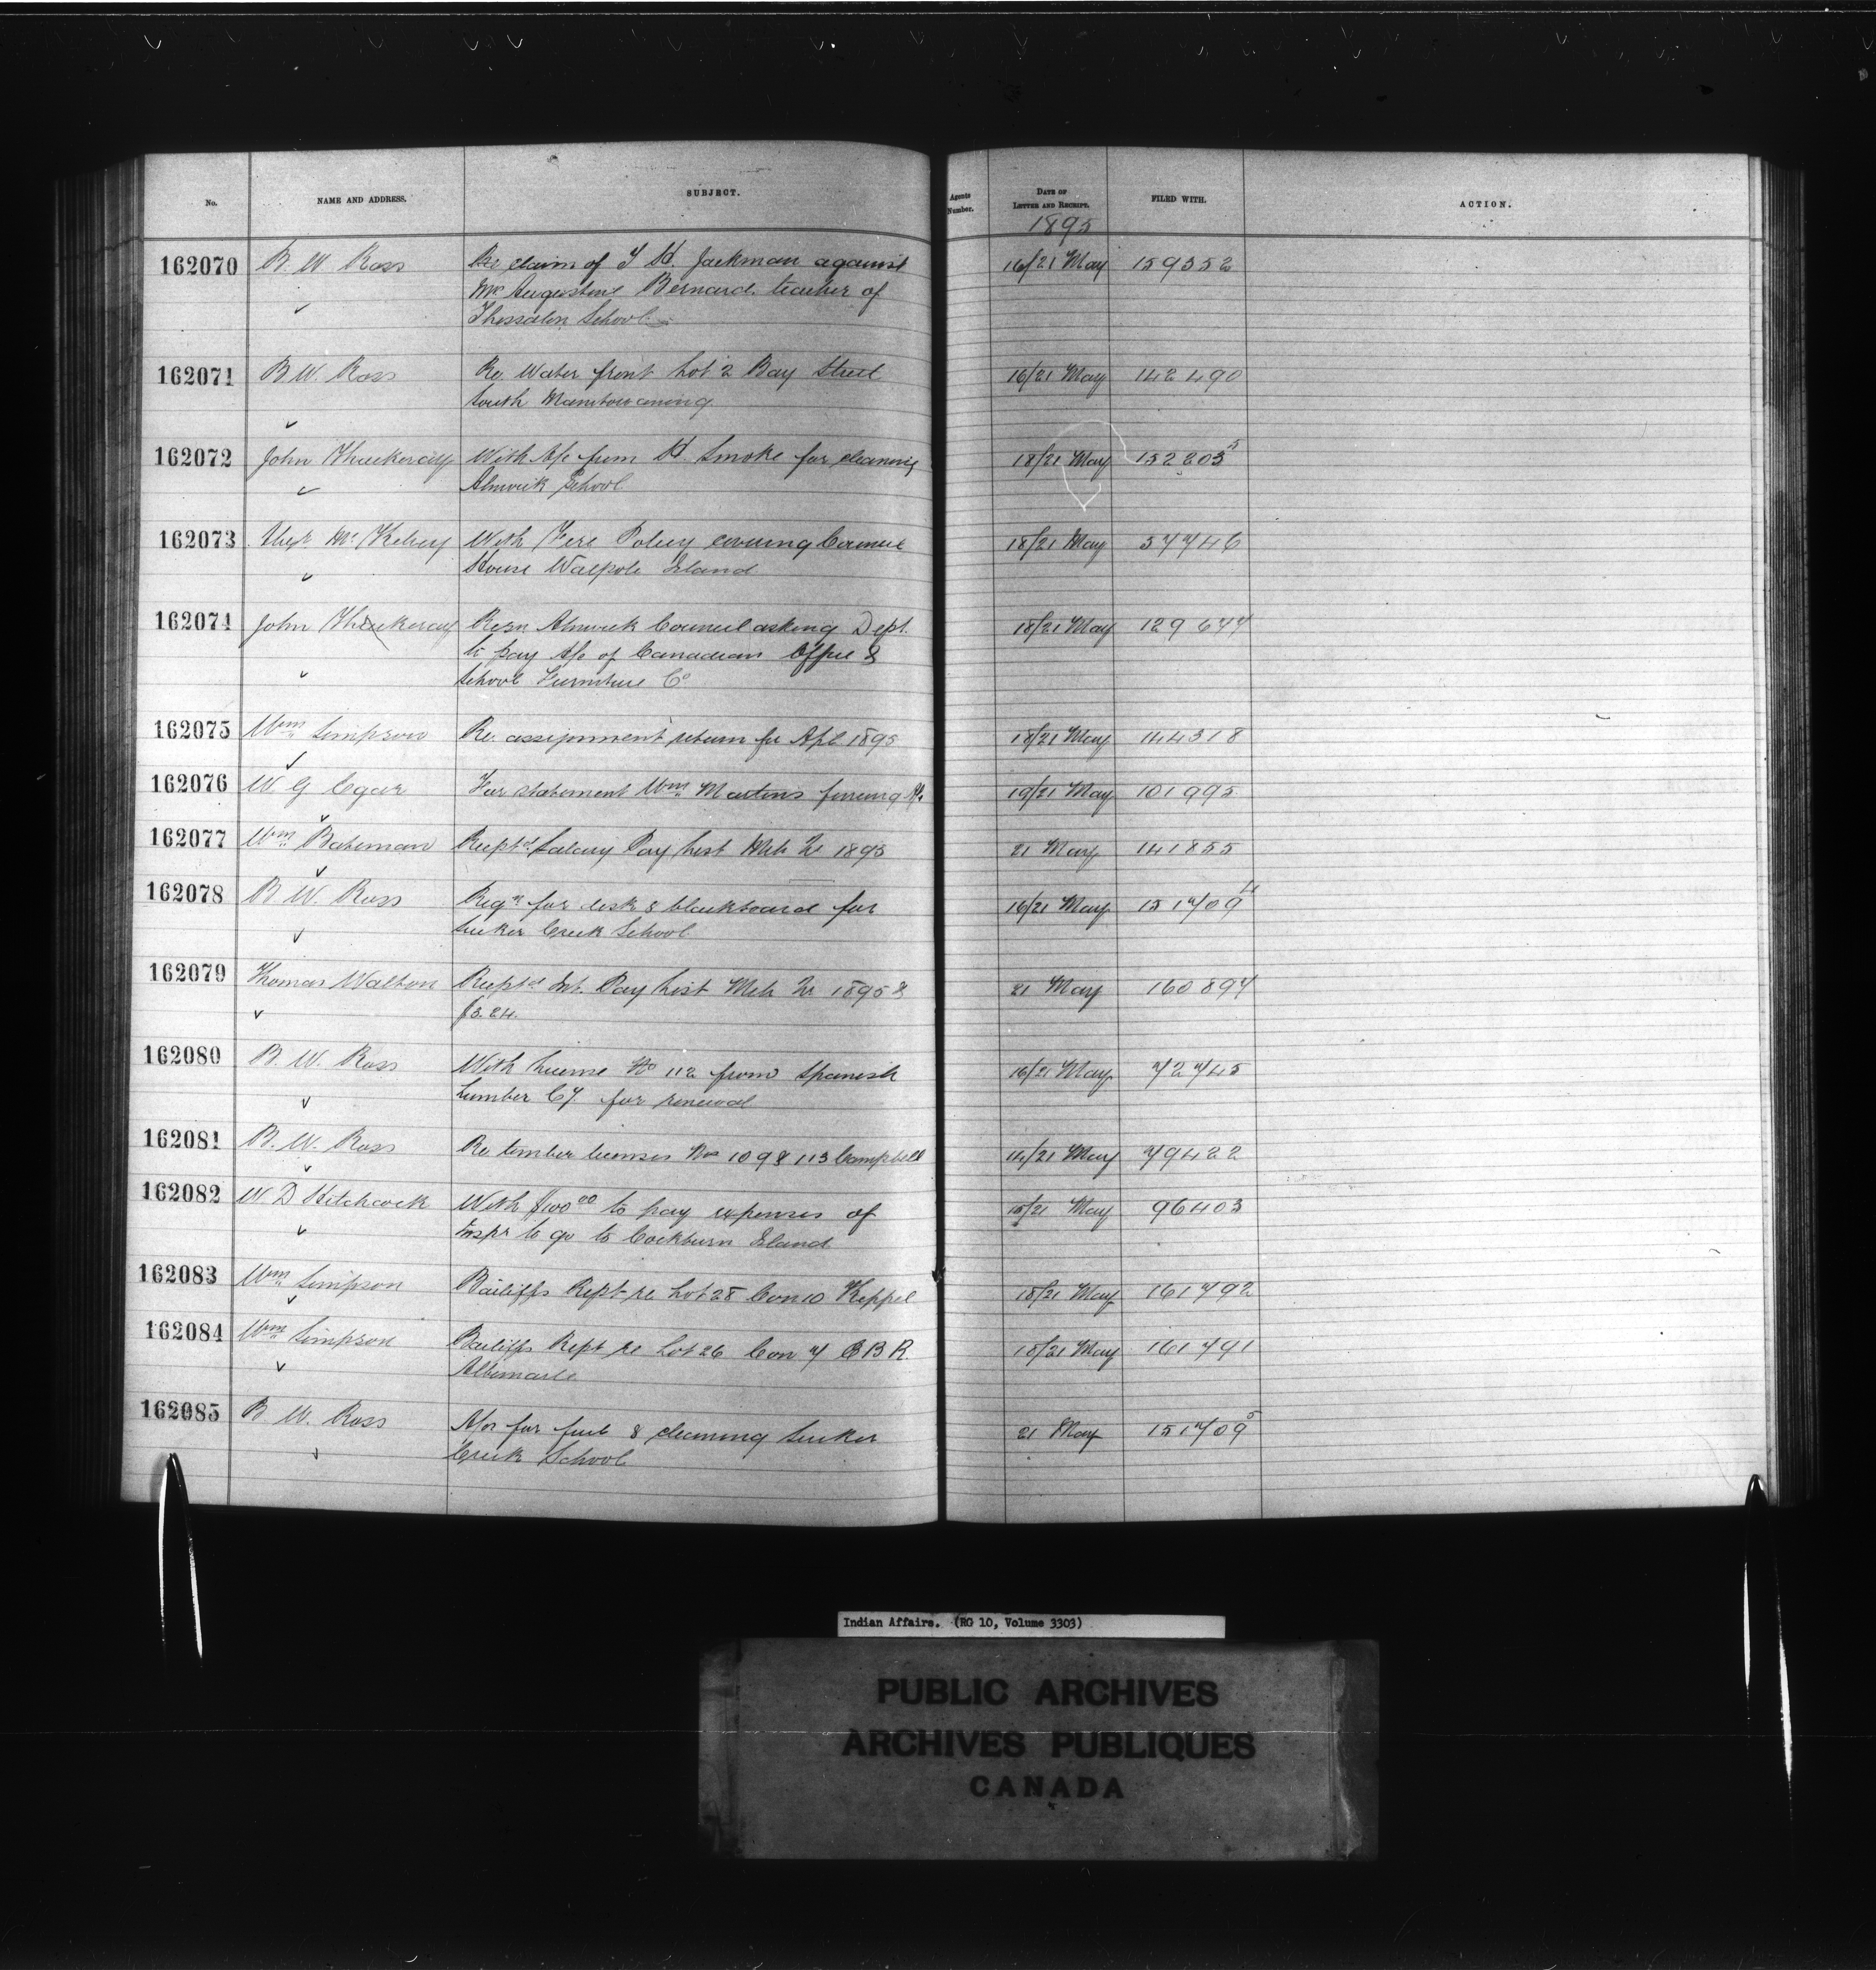 No. NAME AND ADDRESS. SUBJECT. Agents Number. DATE OF LETTER AND RECEIPT. FILED WITH. ACTION.
1895
162070 B. W. Ross Re claim of T H. Jackman against 16/21 May 159352
Mrs Augustine Bernard, teacher of
Thessalon School.
162071 B W. Ross Re Water front Lot 2 Bay Street 16/21 May 142490
South Manitowaning
162072 John Thackeray With A/c from H. Smoke for cleaning 18/21 May 152203 5
Alnwick School
162073 Alexr McKelvey With Fire Policy covering Council 18/21 May 57746
House Walpole Island
162074 John Thackeray Resn Alnwick Council asking Dept. 18/21 May 129647
to pay A/c of Canadian Office &
School Furniture Co
162075 Wm Simpson Re. assignment return for Apl 1895 18/21 May 144318
162076 W G Egar For statement Wm Martins fencing A/c 19/21 May 101995
162077 Wm Bateman Receptd Salary Pay List Mch Qr 1895 21 May 141855
162078 B. W. Ross Reqn for desk & blackboard for 16/21 May 151709 4
Sucker Creek School
162079 Thomas Walton Receptd Int. Pay List Mch Qr 1895 & 21 May 160894
$3.24.
162080 B. W. Ross With License No 112 from Spanish 16/21 May 72745
Lumber Cy. for renewal
162081 B. W. Ross Re timber licenses Nos 109 & 113 Campbell 14/21 May 79422
162082 W. D Hitchcock With $100 00 to pay expenses of 15/21 May 96403
Inspr to go to Cockburn Island
162083 Wm Simpson Bailiffs Rept re Lot 28 Con 10 Keppel 18/21 May 161792
162084 Wm Simpson Bailiffs Rept re Lot 26 Con 7 E B R 18/21 May 161791
Albemarle
162085 B. W. Ross A/cs for fuel & cleaning Sucker 21 May 151709 5
Creek School
Indian Affairs. (RG 10, Volume 3303)
PUBLIC ARCHIVES
ARCHIVES PUBLIQUES
CANADA